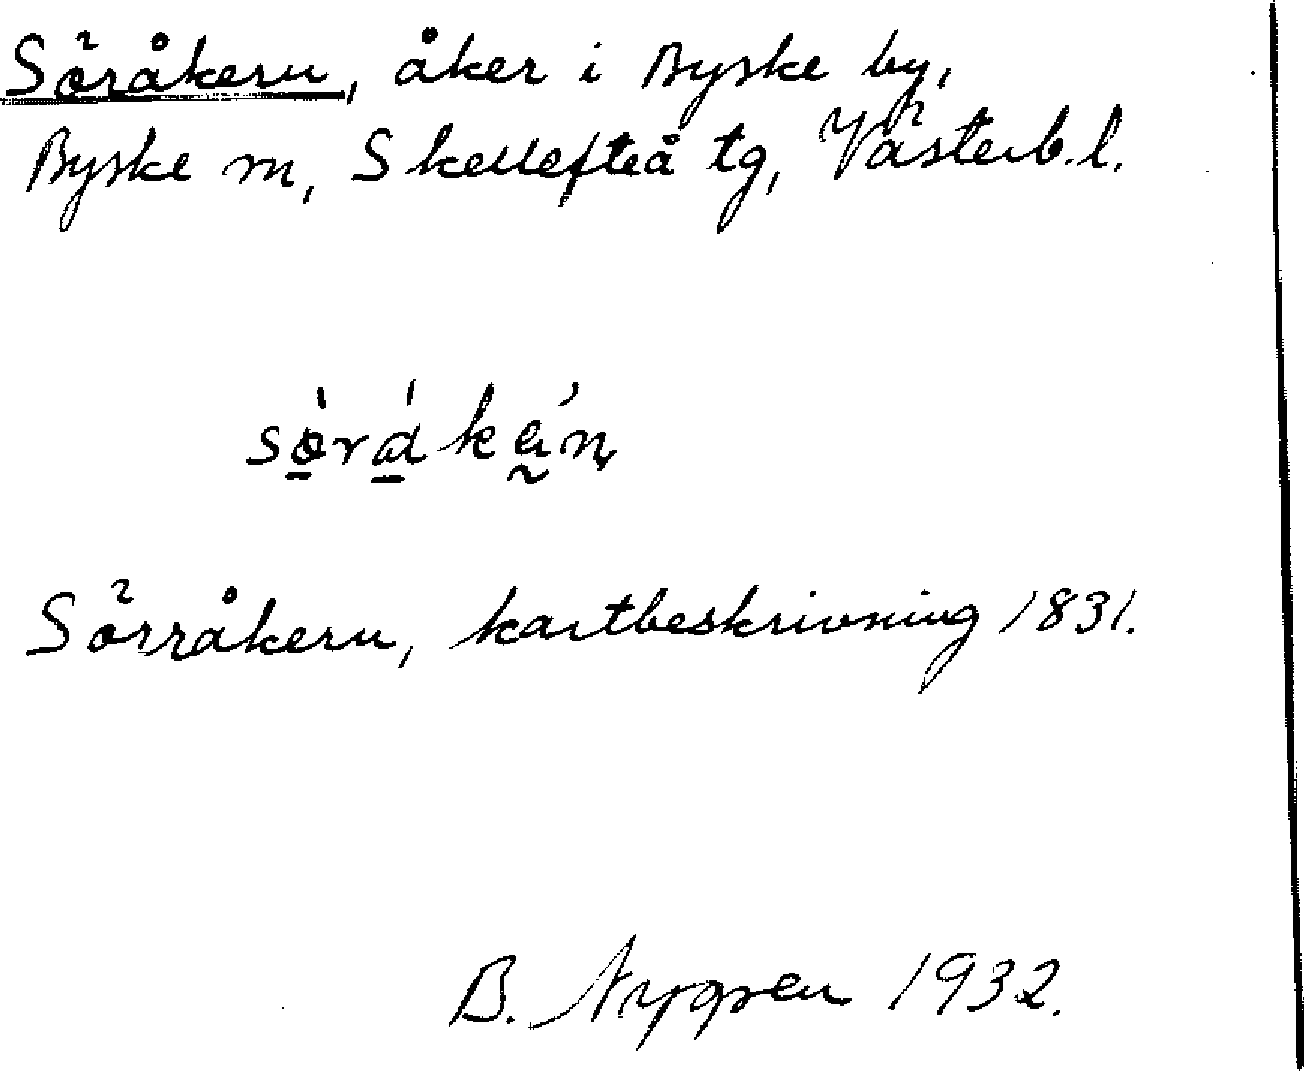 Söråkern, åker i Byske by,
Byske m, Skellefteå tg, Västerb.l.
Sörråkern, kartbeskrivning 1831.
B. Nygren 1932.